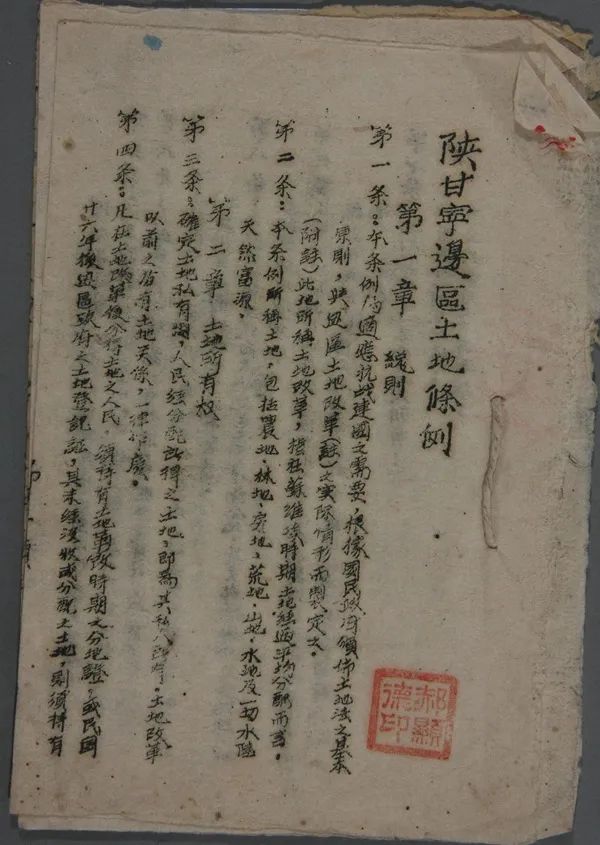 陕甘寧邊區土地條例
第一章 總則
第一条：本条例為適應抗战建国之需要，根據國民政府頒佈土地法之基本
原則，與边區土地改革(註)之实际情形而製定之。
(附註)此地所稱土地改革，指社蘇維埃時期土地經过平均分配而言。
第二条：本条例所稱土地，包括農地．林地．房地．荒地．山地．水地及一切水陸
天然富源。
第二章 土地所有权
第三条：確定土地私有制，人民經分配所得之土地，即為其私人所有。土地改革
以前之舊有土地关係，一律作廢。
第四条：凡在土地改革後分得土地之人民，須持有土地革命時期之分地證，或民国
廿六年後边區政府之土地登記証，其未經沒收或分配之土地，則須持有
郝顯德印